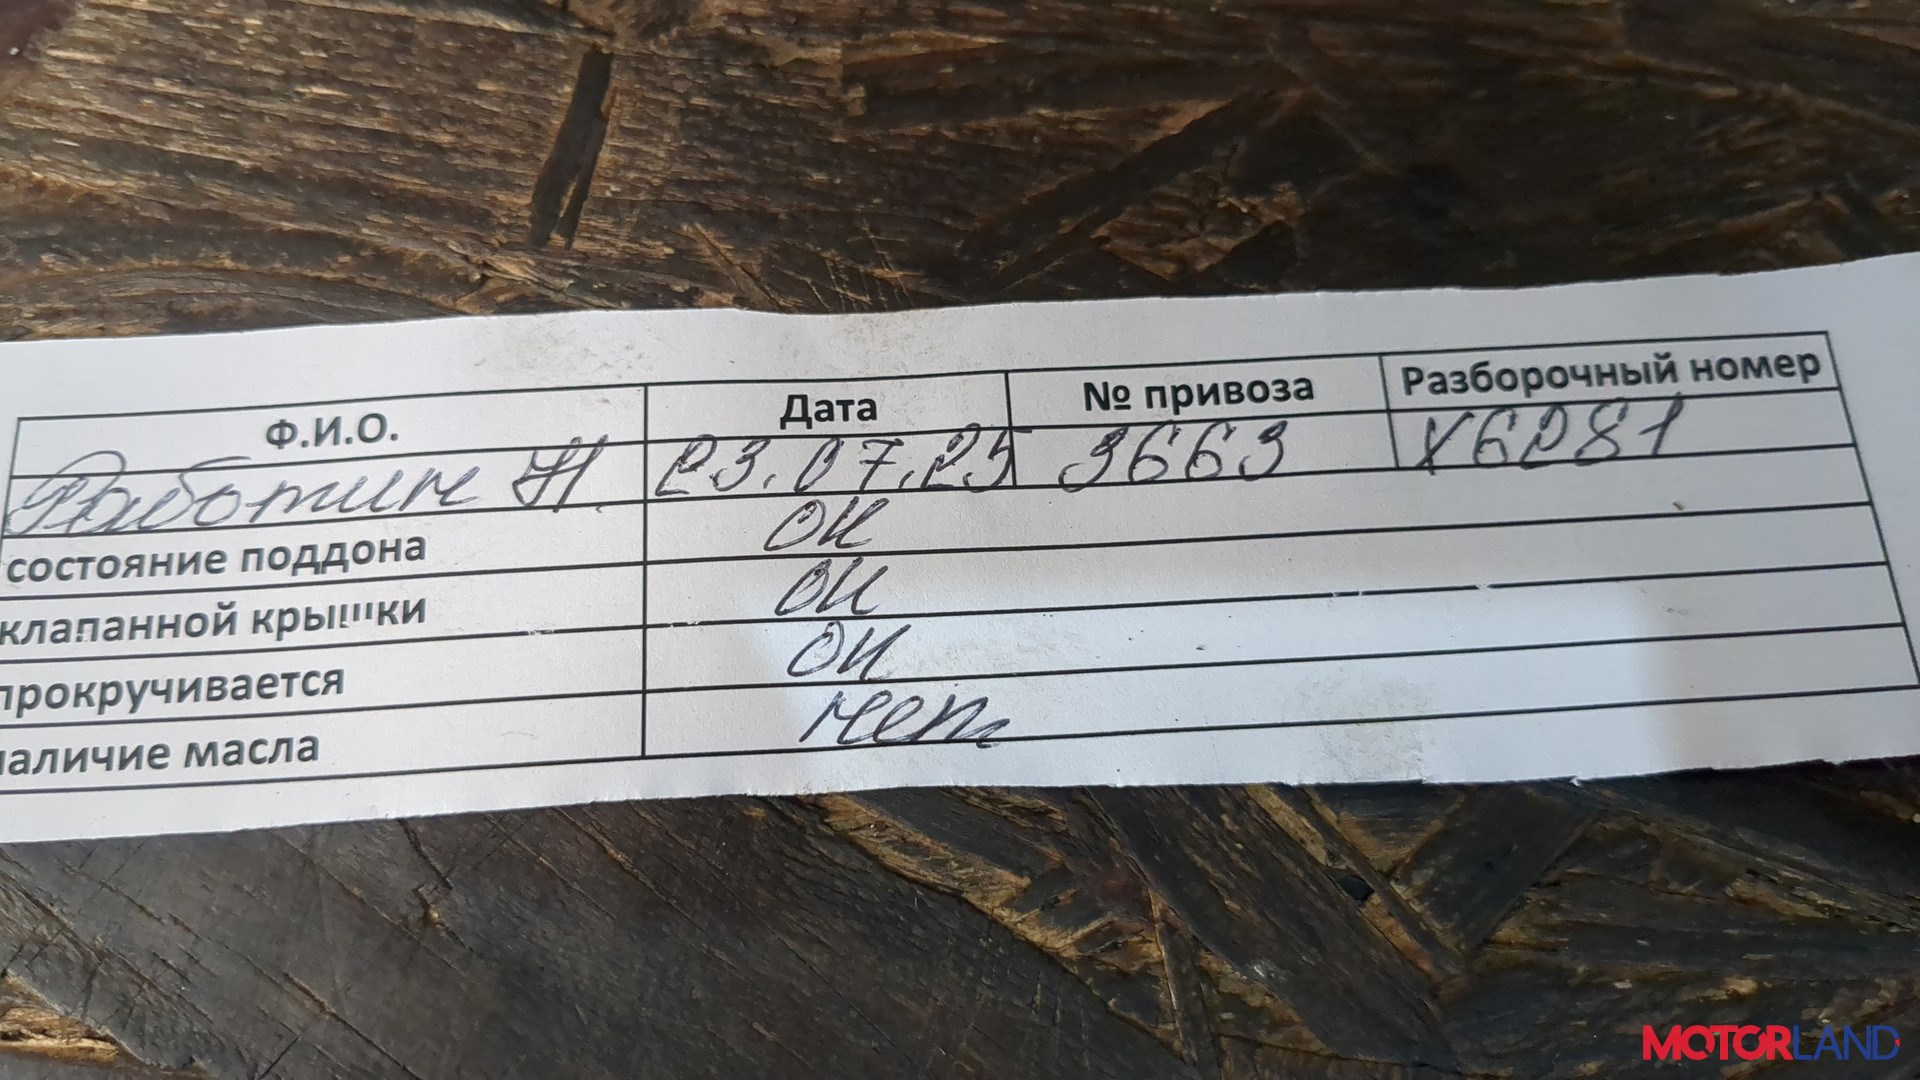 Ф.И.О. Дата № привоза Разборочный номер
Работин Н. 23.07.25 3663 X6281
состояние поддона ок
клапанной крышки ок
прокручивается ок
наличие масла нет
MOTORLAND